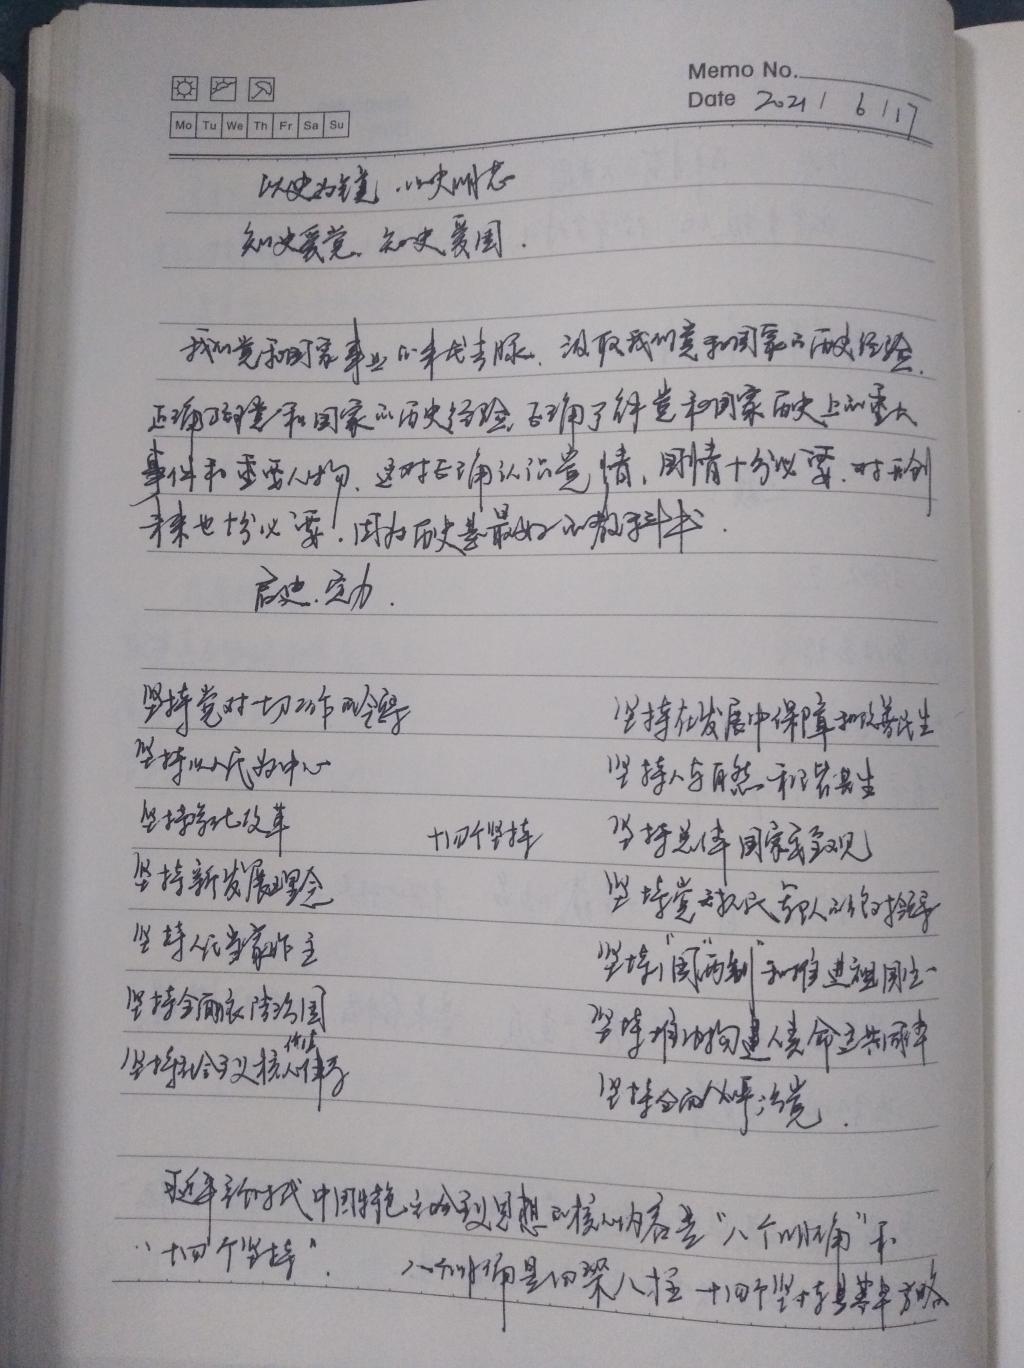 Memo No.
Date 2021 / 6 / 17
Mo Tu We Th Fr Sa Su
以史为镜、以史明志
知史爱党、知史爱国.
我们党和国家事业的来龙去脉、汲取我们党和国家的历史经验、
正确了解党和国家的历史经验,正确了解党和国家历史上的重大
事件和重要人物、这对正确认识党情、国情十分必要、对开创
未来也十分必要,因为历史是最好的教科书.
定力.
坚持党对一切工作的领导
坚持以人民为中心
坚持深化改革
坚持新发展理念
坚持人民当家作主
坚持全面依法治国
坚持社会主义核心价值体系
十四个坚持
坚持在发展中保障和改善民生
坚持人与自然和谐共生
坚持总体国家安全观
坚持党对人民军队的绝对领导
坚持"一国"两制"和推进祖国统一
坚持推动构建人类命运共同体
坚持全面从严治党.
新时代中国特色社会主义思想的核心内容是"八个明确"和
"十四个坚持". 八个明确是四梁八柱 十四个坚持是基本方略